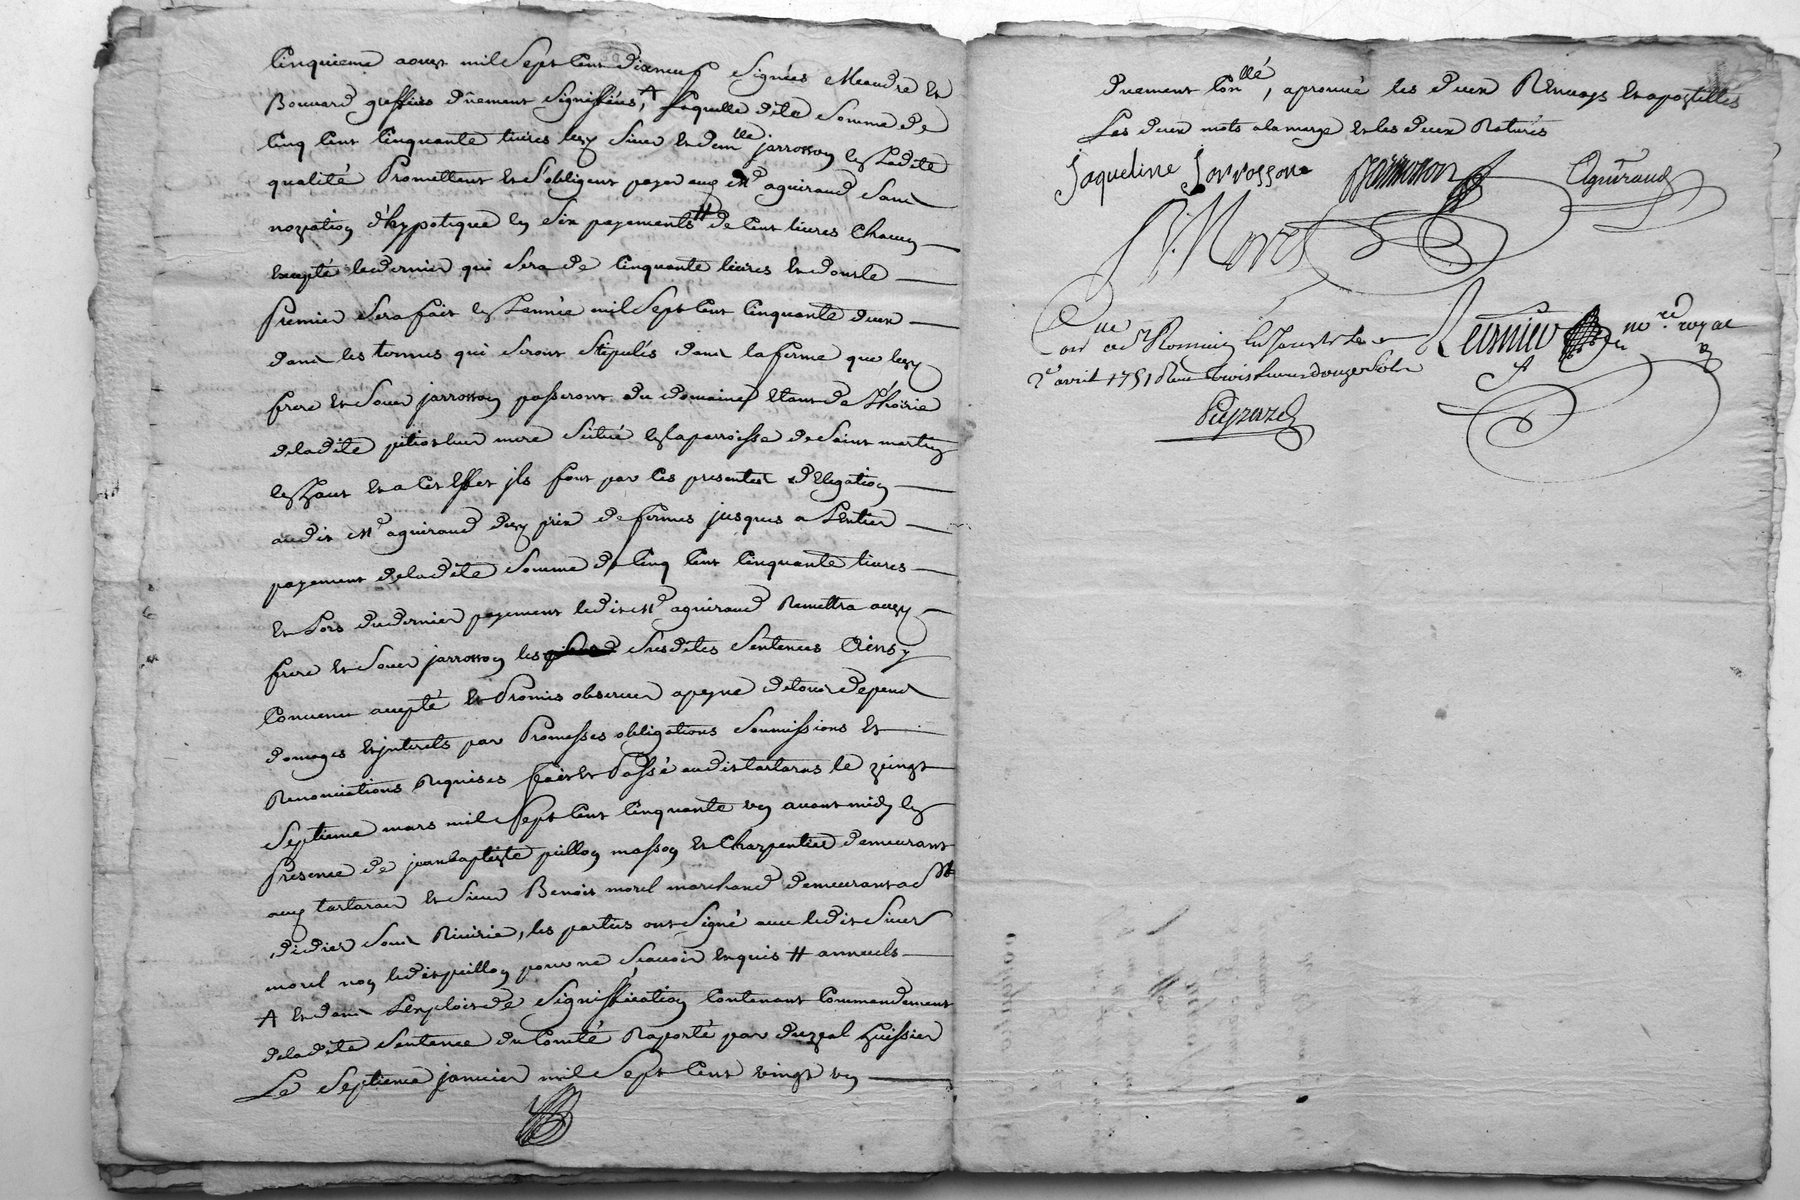 Cinquieme aoust mil Sept Cent dixneuf Signées Meandre et
Bouvard greffiers dûement Signiffiées, A Laquelle dite Somme de
Cinq Cent Cinquante livres lesd Sieur et dem.lle jarrosson en Ladite
qualité Promettent et S'obligent payer aud Mr aguiraud Sans
novation d'hypotique en Six payements # de Cent livres Chacun
excepté le dernier qui Sera de Cinquante livres et dont le
Premier Sera fait en L'année mil Sept Cent Cinquante deux
dans les termes qui Seront Stipulés dans la ferme que lesd
frere et Soeur jarrosson passeront du domaine étant de l'hoirie
de ladite pitiot leur mere Situé en la parroisse de Saint martin
en haut et a Cet effet jls font par Ces presentes delegation
audit Mr aguiraud dud prix de fermes jusques a L'entier
payement de ladite Somme de Cinq Cent Cinquante livres
et Lors du dernier payement ledit Mr aguiraud Remettra auxd
frere et Soeur jarrosson les Susdites Sentences Ainsy
Convenu accepté et Promis observer a peyne de tous depens
domages et jnterets par Promesses obligations Soumissions et
Renonciations Requises fait et Passé audit tartaras le vingt
Septieme mars mil Sept Cent Cinquante un avant midy en
Presence de jean baptiste pillon masson et Charpentier demeurant
aud tartaras et Sieur Benoit morel marchand demeurant a St
didier Sous Riverie, les parties ont Signé avec ledit Sieur
morel non ledit pillon pour ne Scavoir enquis # annuels
A et dans L'exploit de Signiffication Contenant Commandement
de ladite Sentence du Comté Raporté par duzeal huissier
Le Septieme janvier mil Sept Cent vingt un
duement Con.llé, aprouvé les deux Renvoys et apostilles
Les deux mots a la marge et les deux Raturés
Jaqueline Jarrossone Jarrosson Aguiraud
Morel
Con.lle a St Romain en Jarrest le
2e avril 1751 Reçu trois livres douze Sols
Reynier no.re royal
Peyrard